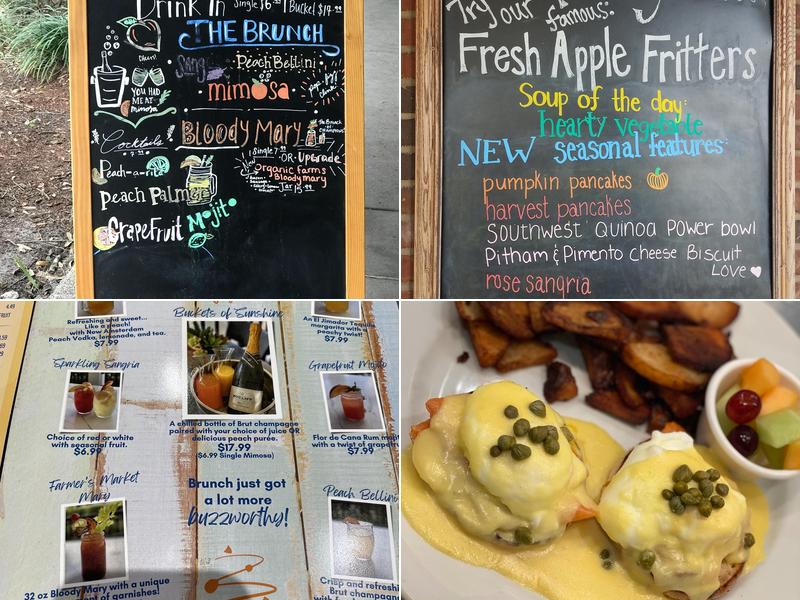 Drink in Single $6.⁹⁹ 1 Bucket $17.⁹⁹
THE BRUNCH
Cheers!
Sangria Peach Bellini
YOU HAD
ME AT
mimosa
mimosa
Cocktails
7.99
BLOODY MARY
1 Single 7.⁹⁹
-OR- Upgrade
NEW Organic farms
Bloody mary
Jar 15.⁹⁹
Peach-a-rita
peach Palmer
GrapeFruit Mojito
Try our
famous:
Fresh Apple Fritters
Soup of the day:
hearty vegetable
NEW seasonal features:
pumpkin pancakes
harvest pancakes
Southwest Quinoa Power bowl
Pitham & Pimento Cheese Biscuit
Love
rose sangria
4.49
FRUIT
Refreshing and sweet...
Like a peach!
with New Amsterdam
Peach Vodka, lemonade, and tea.
$7.99
Sparkling Sangria
Choice of red or white
with seasonal fruit.
$6.99
Farmer's Market
Mary
32 oz Bloody Mary with a unique
of garnishes!
Buckets of Sunshine
A chilled bottle of Brut champagne
paired with your choice of juice OR
delicious peach purée.
$17.99
($6.99 Single Mimosa)
Brunch just got
a lot more
buzzworthy!
An El Jimador Tequila
margarita with
peachy twist!
$7.99
Grapefruit Mojito
Flor de Cana Rum
with a twist of
$7.99
Peach Bellini
Crisp and
Brut